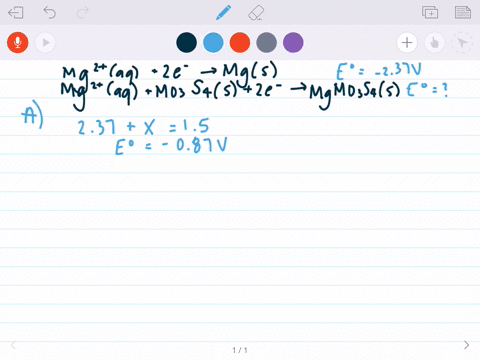 Mg²⁺(aq) + 2e⁻ → Mg(s) E° = -2.37V
Mg²⁺(aq) + MO3 S4(s) + 2e⁻ → MgMO3S4(s) E° = ?
A)
2.37 + X = 1.5
E° = -0.87V
1 / 1